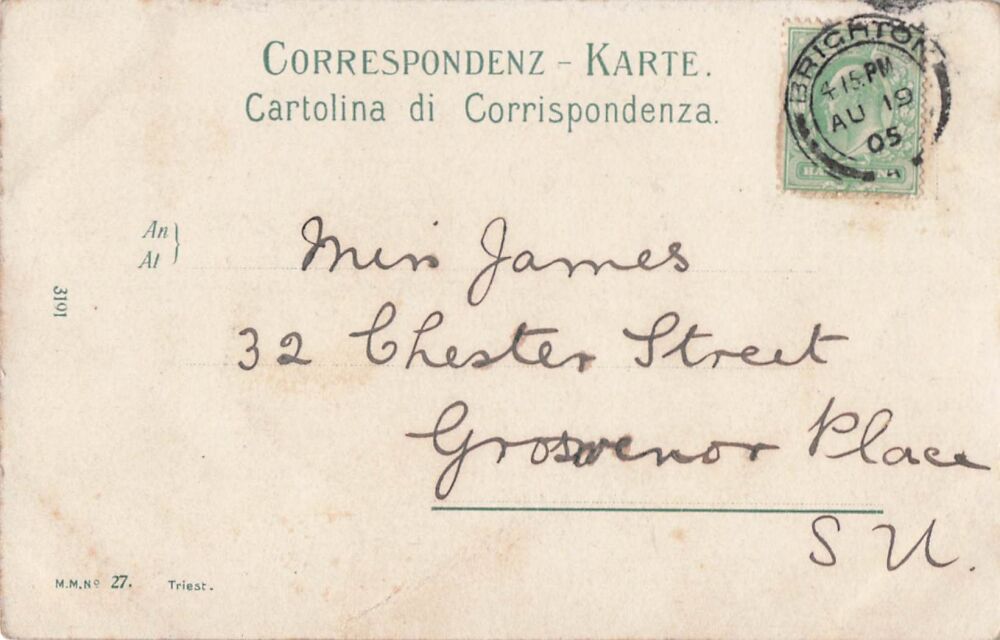 CORRESPONDENZ - KARTE.
Cartolina di Corrispondenza.
BRIGHTON
4.15.PM
AU 19
05
A
An
At
Miss James
3191
32 Chester Street
Grosvenor Place
S W.
M.M.No 27. Triest.